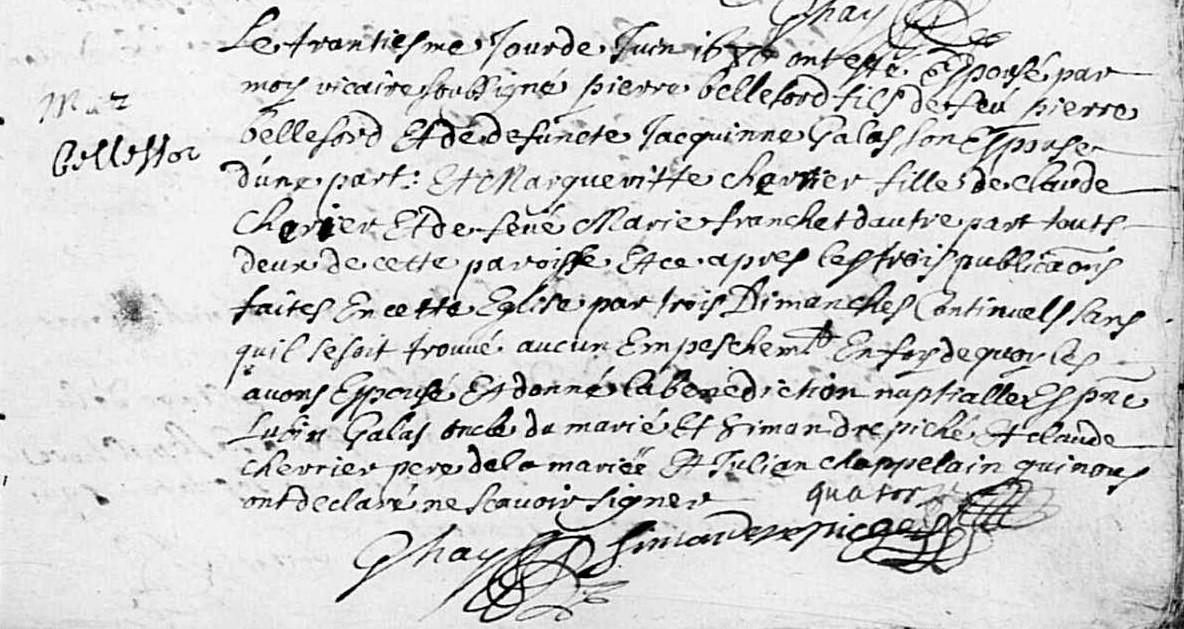 Le trantiesme Jour de Juin ont esté Espousé par
moy vicaire soubsigné pierre belleford fils de feu pierre
belleford Et de defuncte Jacquinne Galas son Espouse
d'une part: Et Margueritte charrier fille de claude
Charier Et de feuë Marie franchet dautre part touts
deux de cette paroisse Et ce apres les trois publicaons
faites En cette Eglise par trois Dimanches Continuels sans
quil se soit trouué aucun Empeschemt En foy de quoy les
auons Espousé Et donné la benediction nuptialle Es pñce
Galas oncle du marié Et Simandre piché Et claude
cherrier pere de la mariéé Et Julian chappelain qui nous
ont declaré ne scavoir signer
Ghay